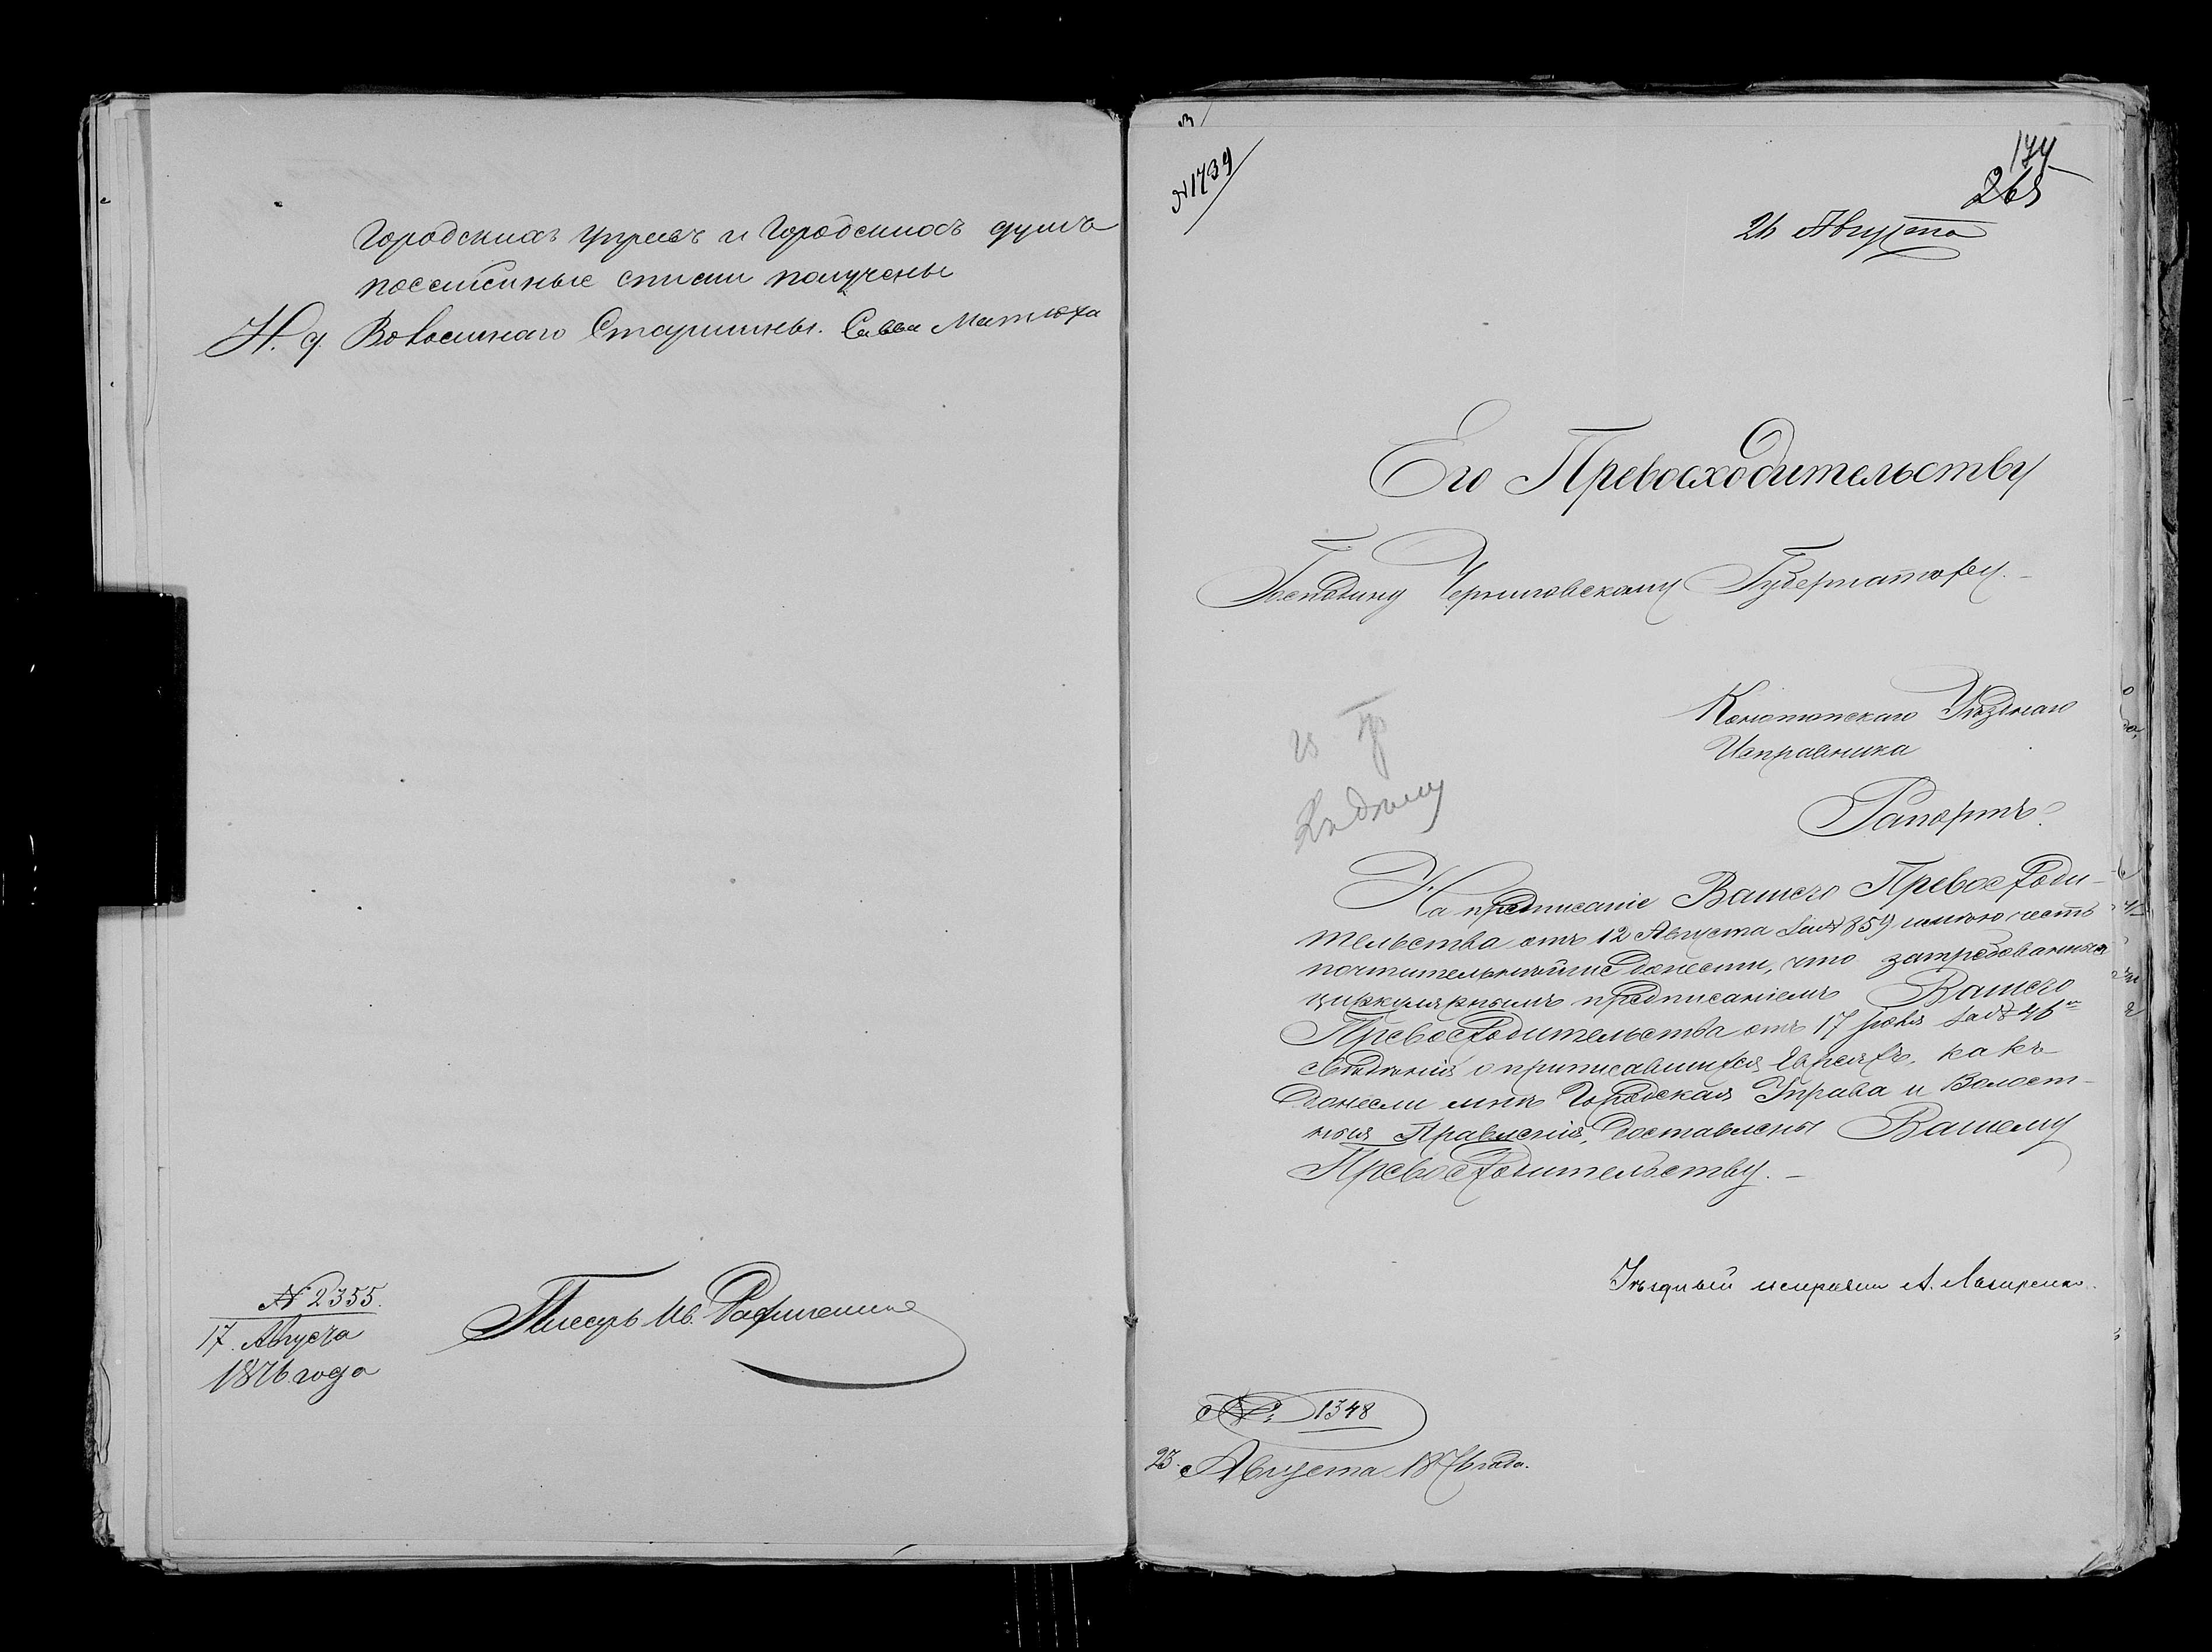 Городскихъ Управъ и Городскихъ думъ
посемейные списки получены
И. д. Волостнаго Старшины. Савва Матюха
№ 2355.
17. Августа
1876 года
Писарь Ив.
№ 1739
265
26 Августа
Его Превосходительству
Господину Черниговскому Губернатору.
Конотопскаго Уѣзднаго
Исправника
Рапортъ.
На предписаніе Вашего Превосходи-
тельства отъ 12 Августа за № 859 имѣю честь
почтительнѣйше донести, что затребованныя
циркулярнымъ предписаніемъ Вашего
Превосходительства отъ 17 Іюня за № 46
свѣдѣнія о приписавшихся Евреяхъ, какъ
донесли мнѣ Городская Управа и Волост-
ныя Правленія, доставлены Вашему
Превосходительству. —
Уѣздный исправникъ А.
№ 1348
23 Августа 1876 года.